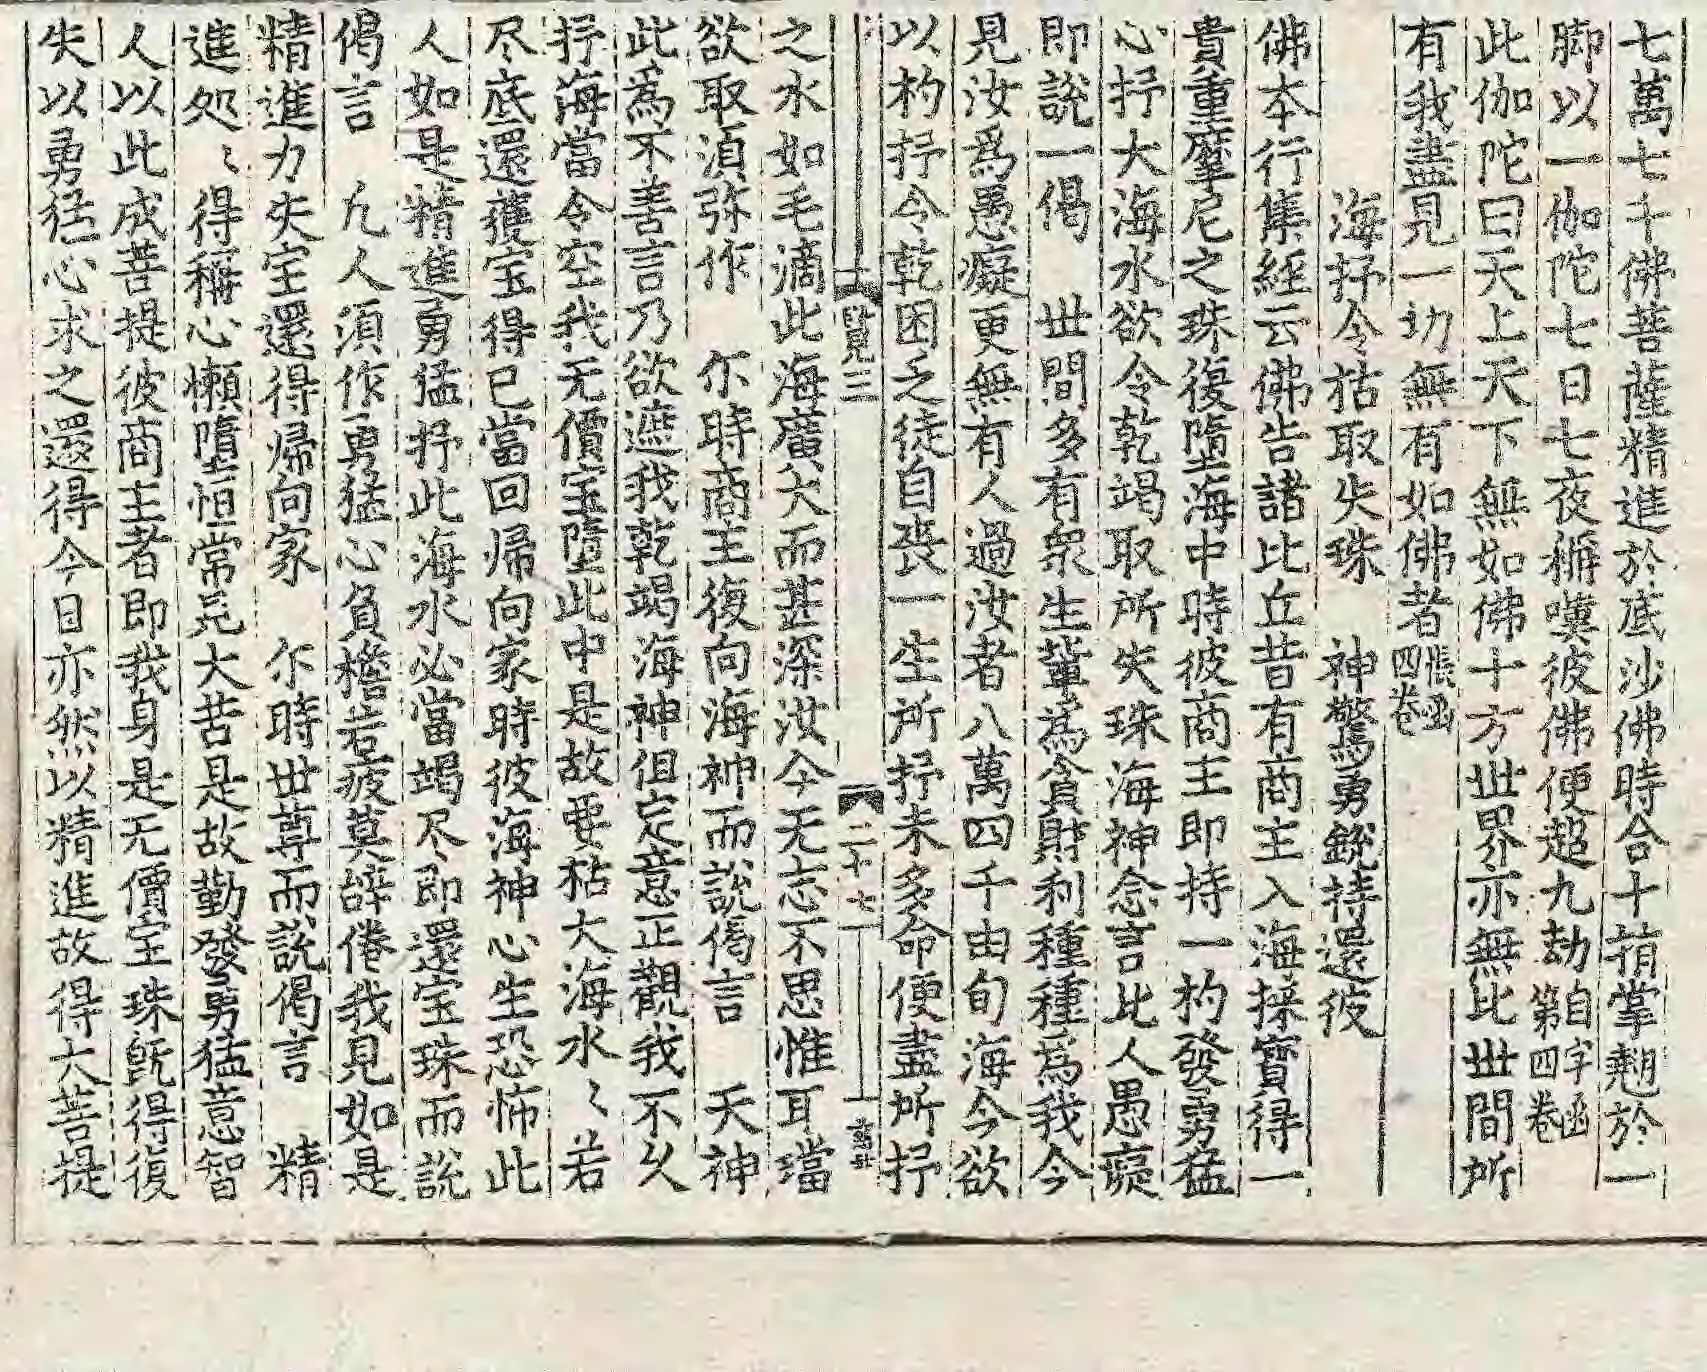 七萬七千佛菩薩精進於底沙佛時合十指掌翹於一
脚以一伽陀七日七夜稱嘆彼佛便超九劫自字函第四卷
此伽陀曰天上天下無如佛十方世界亦無比世間所
有我盡見一切無有如佛者悵函四卷
海抒令枯取失珠　神驚勇銳持還彼
佛本行集經云佛告諸比丘昔有商主入海採寶得一
貴重摩尼之珠復墮海中時彼商主即持一杓發勇猛
心抒大海水欲令乾竭取所失珠海神念言此人愚癡
即說一偈　世間多有衆生輩為貪財利種種為我今
見汝為愚癡更無有人過汝者八萬四千由旬海今欲
以杓抒令乾困乏徒自喪一生所抒未多命便盡所抒
賢三　二十七
之水如毛滴此海廣大而甚深汝今无志不思惟耳璫
欲取須弥作　尓時商主復向海神而說偈言　天神
此為不善言乃欲遮我乾竭海神伹定意正觀我不乆
抒海當令空我无價宝墮此中是故要枯大海水〻若
尽底還獲宝得已當回帰向家時彼海神心生恐怖此
人如是精進勇猛抒此海水必當竭尽即還宝珠而說
偈言　凢人須作勇猛心負檐若疲莫辝倦我見如是
精進力失宝還得帰向家　尓時世尊而說偈言　精
進処〻得稱心懶墮恒常見大苦是故勤發勇猛意智
人以此成菩提彼商主者即我身是无價宝珠旣得復
失以勇猛心求之還得今日亦然以精進故得大菩提